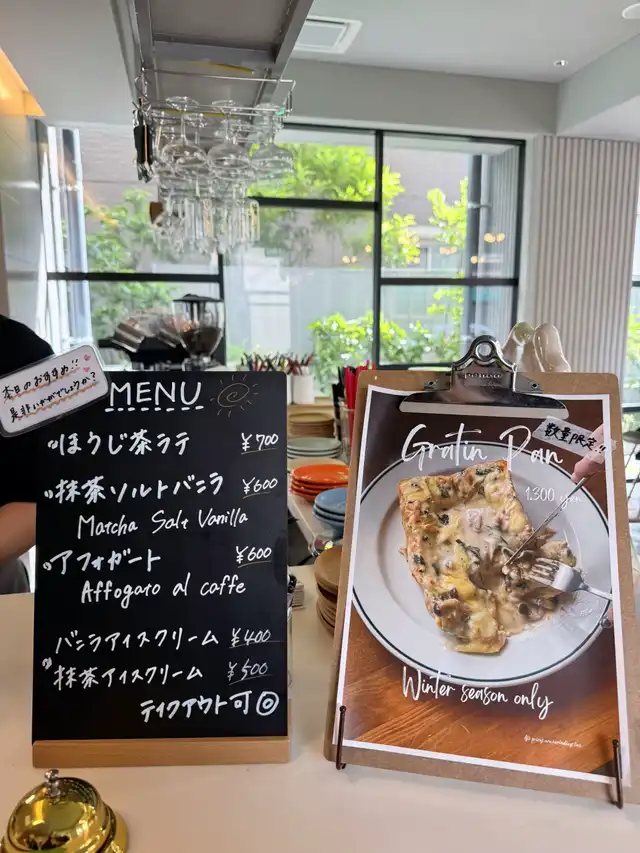 本日のおすすめ!!
是非いかがでしょうか?
MENU
ほうじ茶ラテ ¥700
抹茶ソルトバニラ ¥600
Matcha Salt Vanilla
アフォガート ¥600
Affogato al caffe
バニラアイスクリーム ¥400
抹茶アイスクリーム ¥500
テイクアウト可◎
Gratin Pan
数量限定!!
1.300 yen
Winter season only
All prices are including tax.